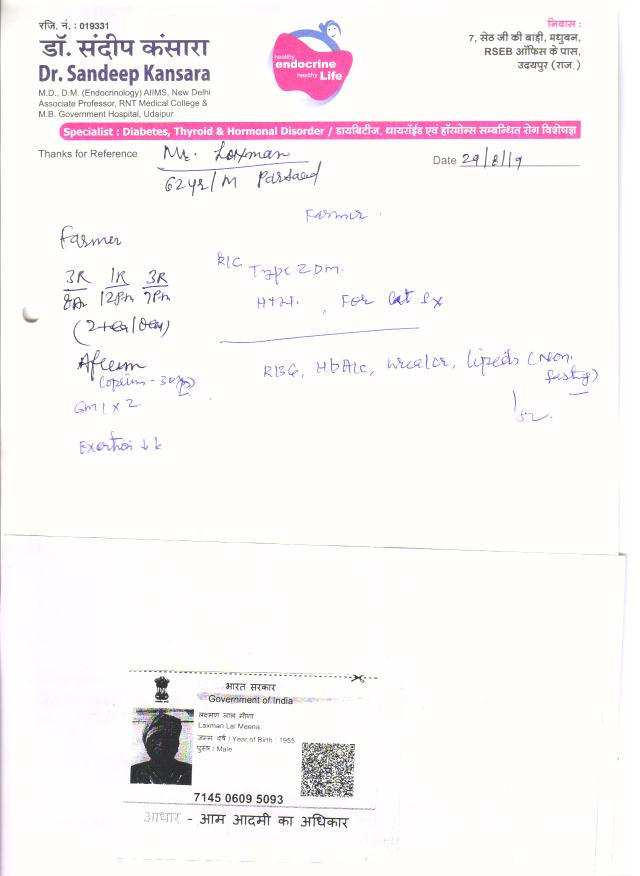 रजि. नं. : 019331
डॉ. संदीप कंसारा
Dr. Sandeep Kansara
M.D., D.M. (Endocrinology) AIIMS, New Delhi
Associate Professor, RNT Medical College &
M.B. Government Hospital, Udaipur
healthy
endocrine
healthy Life
निवास :
7, सेठ जी की बाड़ी, मधुबन,
RSEB ऑफिस के पास,
उदयपुर (राज.)
Specialist : Diabetes, Thyroid & Hormonal Disorder / डायबिटीज, थायरॉईड एवं हॉरमोन्स सम्बन्धित रोग विशेषज्ञ
Thanks for Reference Mr. Laxman
Date 29/8/19
62yr/M
Farmer
Farmer
3R 1R 3R
8Am 12Pm 7Pm
Afeem
(opium -
GM1 x 2
Exertion
K/C Type 2 DM.
HTN. , For
RBG, HbA1c, lipids (Non.
fasting)
भारत सरकार
Government of India
लक्ष्मण लाल मीणा
Laxman Lal Meena
जन्म वर्ष / Year of Birth : 1955
पुरुष / Male
7145 0609 5093
आधार - आम आदमी का अधिकार